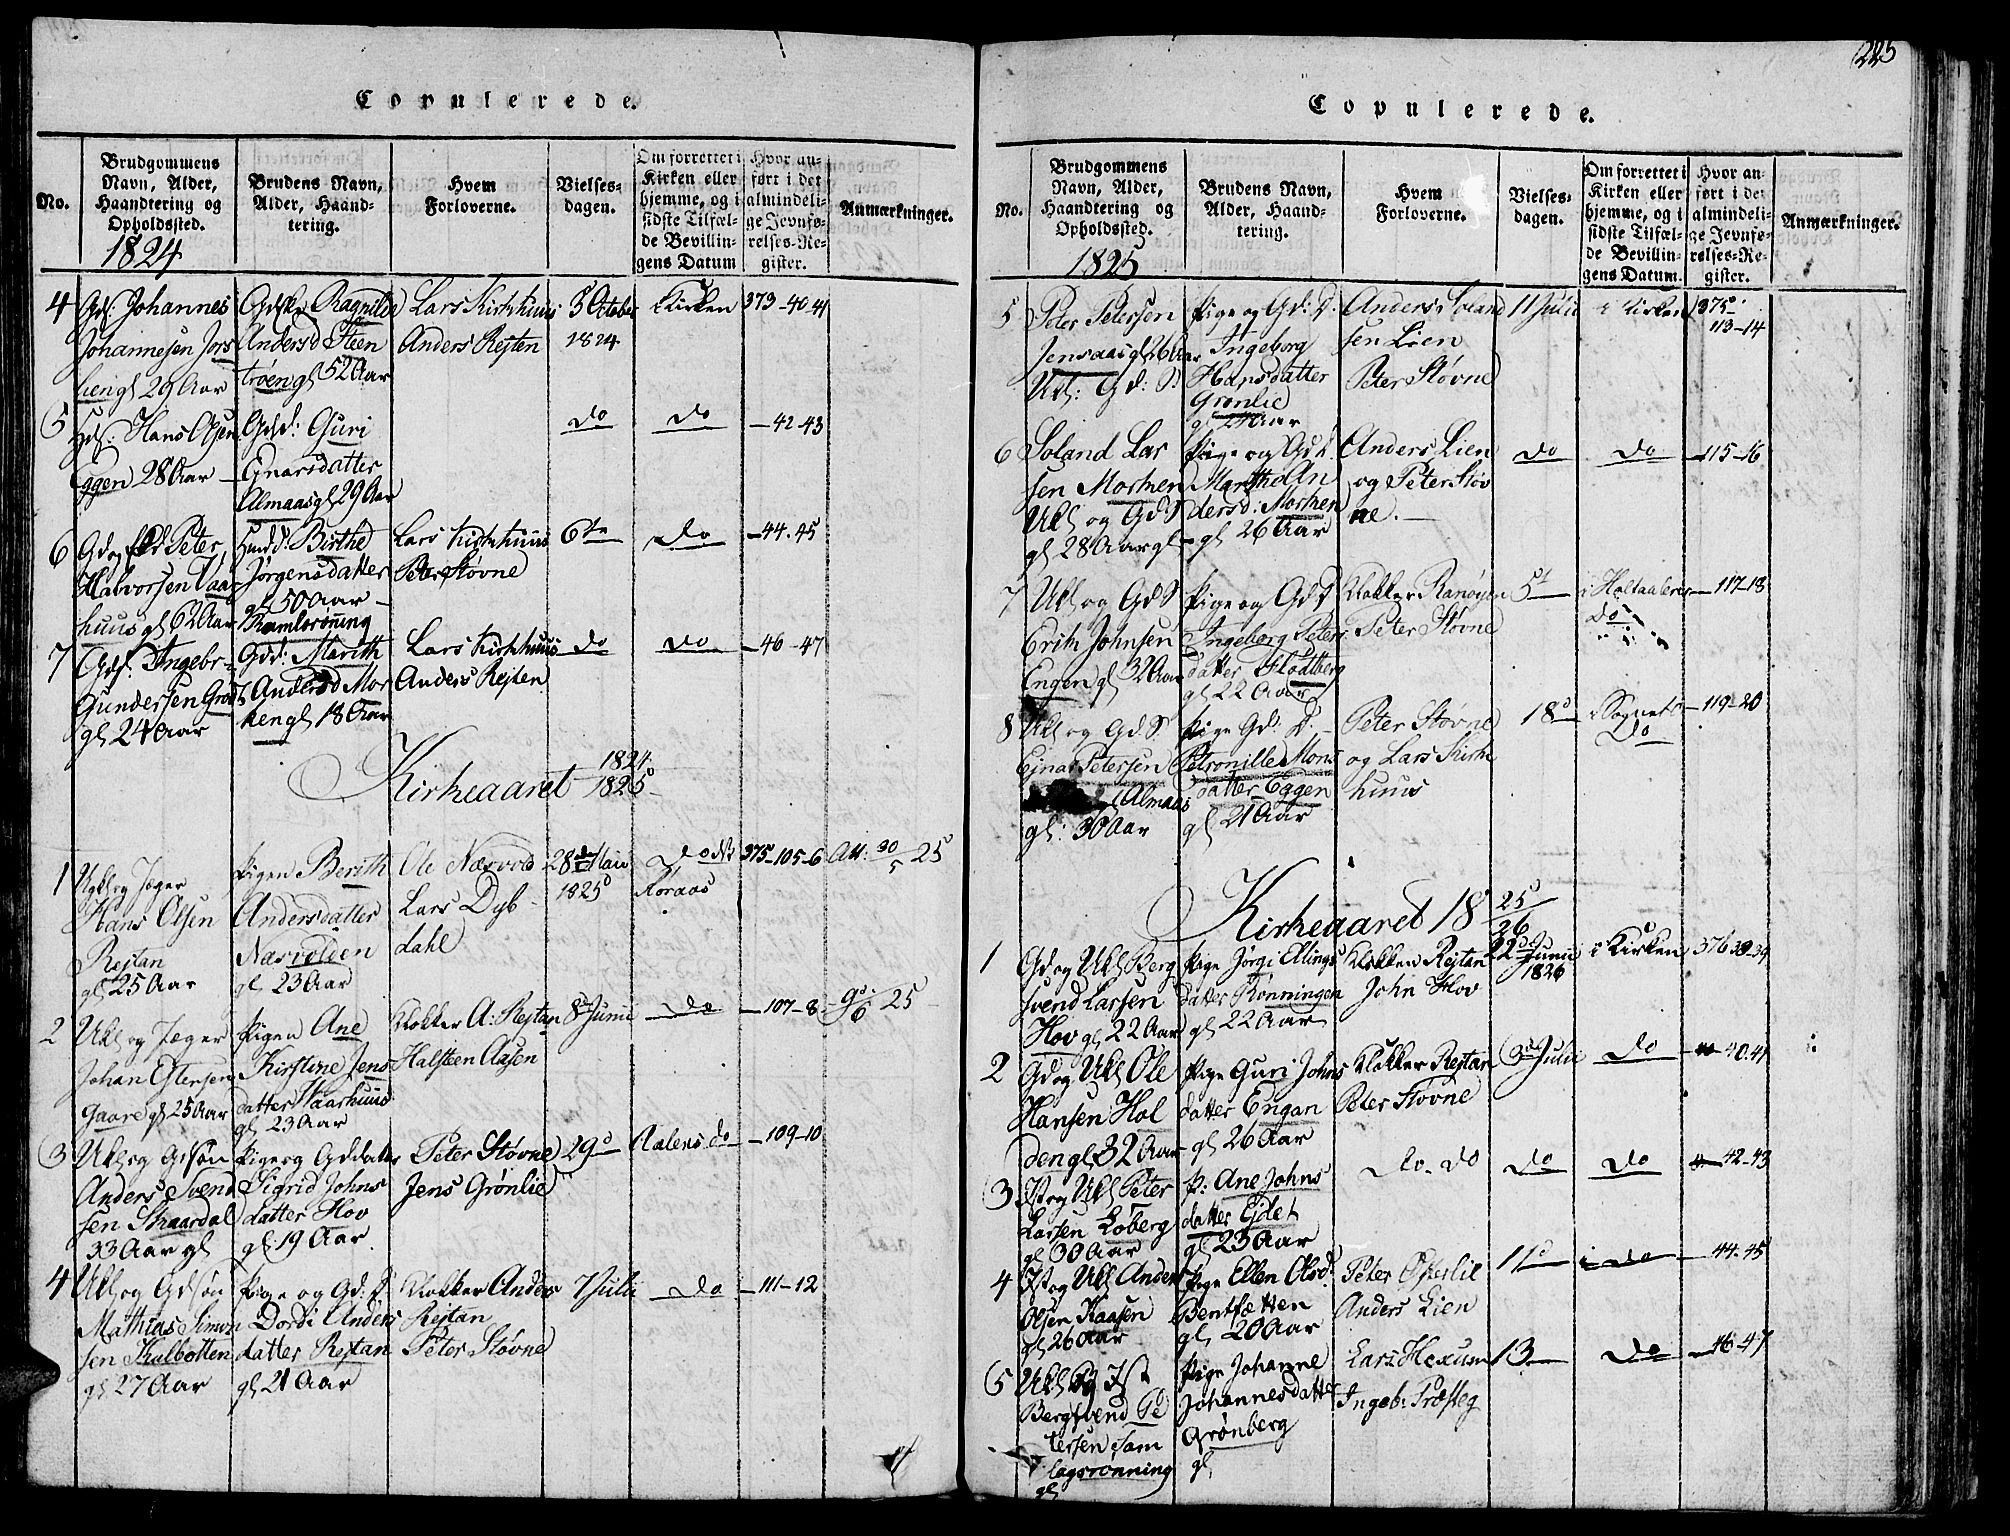 225
Copulerede.
No.
Brudgommens
Navn, Alder,
Haandtering og
Opholdssted.
1824
Brudens Navn,
Alder, Haand-
tering.
Hvem
Forloverne.
Vielses-
dagen.
Om forrettet i
Kirken eller
hjemme, og i
sidste Tilfæl-
de Bevillin-
gens Datum
Hvor an-
ført i det
almindeli-
ge Jevnfø-
relses-Re-
gister.
Anmærkninger.
4
Johannes
Johannesen Jors
hengl 29 Aar
Ragnild
Andersd Steen
trøengl 52 Aar
Lars Kirkhuus
Anders Rejten
5 October
1824
Kirken
373-40-41
5
Hans Olsen
Eggen 28 Aar
Gdd: Guri
Enarsdatter
Almaasgl 29 Aar
do
do
-42-43
6
Peter
Halvorsen Vaar
huus gl 62 Aar
Birthe
Jørgensdatter
gl 50 Aar
Ramlorønning
Lars Kirkhuus
Peter Støvne
6te
do
-44-45
7
Gds. Ingebr-
Gundersen Grøt
gl 24 Aar
Gdd: Marith
Andersd Mor
kengl 18 Aar
Lars Kirkhuus
Anders Rejten
do
do
-46-47
Kirkeaaret 1824
1825
1
Ukl og Jæger
Hans Olsen
Rejtan
gl 25 Aar
Pigen Berith
Andersdatter
Næsvolden
gl 23 Aar
Ole Næsvold
Lars Dyb-
dahl
28de Maii
1825
Do
Røraas
375-105-6
Att: 30/5 25
2
Ukl og Jæger
Johan Estensen
Gaare gl 25 Aar
Pigen Ane
Kirstine Jens
datter Haarhuus
gl 23 Aar
Klokker A: Rejtan
Halsteen Aasen
8 Junii
do
-107-8
9/6 25
3
Ukl og Gdsøn
Anders Svend
sen Straardal
33 Aar gl
Pige og Gddatter
Sigrid Johns
datter Hov
gl 19 Aar
Peter Støvne
Jens Grønlie
29
Aalens do
-109-10
4
Ukl og Gdsøn
Mathias Simon
sen Kalbotten
gl 27 Aar
Pige og Gd: D
Dordi Anders
datter Rejtan
gl 21 Aar
Klokker Anders
Rejtan
Peter Støvne
7 Julii
do
-111-12
Copulerede.
No.
Brudgommens
Navn, Alder,
Haandtering og
Opholdssted.
1825
Brudens Navn,
Alder, Haand-
tering.
Hvem
Forloverne.
Vielses-
dagen.
Om forrettet i
Kirken eller
hjemme, og i
sidste Tilfæl-
de Bevillin-
gens Datum.
Hvor an-
ført i det
almindeli-
ge Jevnfø-
relses-Re-
gister.
Anmærkninger.
5
Peter Petersen
Jensaas gl 26 Aar
Ukl: Gd: S
Pige og Gd: D:
Ingeborg
Hansdatter
Grønlie
gl 24 Aar
Anders Soland
sen Lien
Peter Støvne
11 Julii
i Kirken
375
113-14
6
Soland Lar
sen Morken
Ukl og Gd S
gl 28 Aar gl
Pige og Gd D.
Marith An
dersd: Morken
gl 26 Aar
Anders Lien
og Peter Støv
ne.
do
do
-115-16
7
Ukl og Gd S
Erik Johnsen
Engen gl 32 Aar
Pige og Gd D
Ingeborg Peters
datter Flodberg
gl 22 Aar
Klokker Ranøyen
Peter Støvne
5t
i Holtaalens
do
-117-18
8
Ukl og Gd S.
Ejnar Petersen
Almaas
gl: 30 Aar
Pige Gd: D.
Petronille Mons
datter Eggen
gl 21 Aar
Peter Støvne
og Lars Kirk
huus
18
i Sognets
do
-119-20
Kirkeaaret 18 25
26
1
Gd og Ukl Berg
svend Larsen
Hov gl 22 Aar
Pige Jørgi Ellings
datter Rønningen
gl 22 Aar
Klokker Rejtan
John Hov
22de Junii
1826
i Kirken
376 38-39
2
Gd og Ukl Ole
Hansen Hol
den gl 32 Aar
Pige Guri Johns
datter Engan
gl 26 Aar
Klokker Rejtan
Peter Støvne
3 Julii
do
40-41
3
og Ukl Peter
Larsen Løberg
gl 30 Aar
P: Ane Johns
datter Ejdet
gl 23 Aar
do. do
do
do
42-43
4
og Ukl Anders
Olsen Kaasen
gl 26 Aar
Pige Ellen Olsd.
Bentsætten
gl 20 Aar
Peter Østerlie
Anders Lien
11
i do
-44-45
5
Ukl og
Bergsvend Pe
tersen Sam
lagsrønning
gl
Pige Johanne
Johannesdatter
Grønberg
gl
Lars Hexum
Ingeb: Præsteg
13
do
-46-47